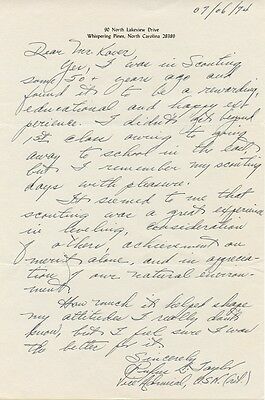 07/06/74
90 North Lakeview Drive
Whispering Pines, North Carolina 28389
Dear Mr.
Yes, I was in Scouting
some 50+ years ago and
found it to be a rewarding,
educational and happy ex-
perience. I didn't get beyond
1st Class owing to going
away to school in the East,
but I remember my scouting
days with pleasure.
It seemed to me that
scouting was a great experience
in leveling, consideration
of others, achievement on
merit alone, and in apprecia-
tion of our natural environ-
ment.
How much it helped shape
my attitudes I really don't
know, but I feel sure I was
the better for it.
Sincerely
Rufus L. Taylor
Vice Admiral, U.S.N. (ret.)